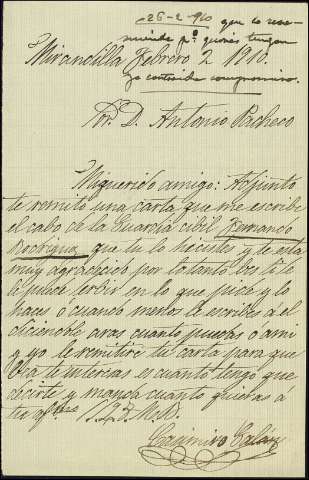 26-2-910 que lo reco-
miende pa. quienes tengan
ya contraido compromiso.
Mirandilla Febrero 2 1910.
Sr. D. Antonio Pacheco
Mi querido amigo: Adjunto
te remito una carta que me escribe
el cabo de la Guardia cibil Fernando
Rodrigez que tu lo hicistes y te esta
muy agradecido por lo tanto bes si te
place serbir en lo que pide y lo
haces ó cuando menos le escribes á el
diciendole aras cuanto puedas ó a mi
y yo le remitiré tu carta para que
te interesas es cuanto tengo que
decirte y manda cuanto quieras a
tu afmo
Casimiro Galán